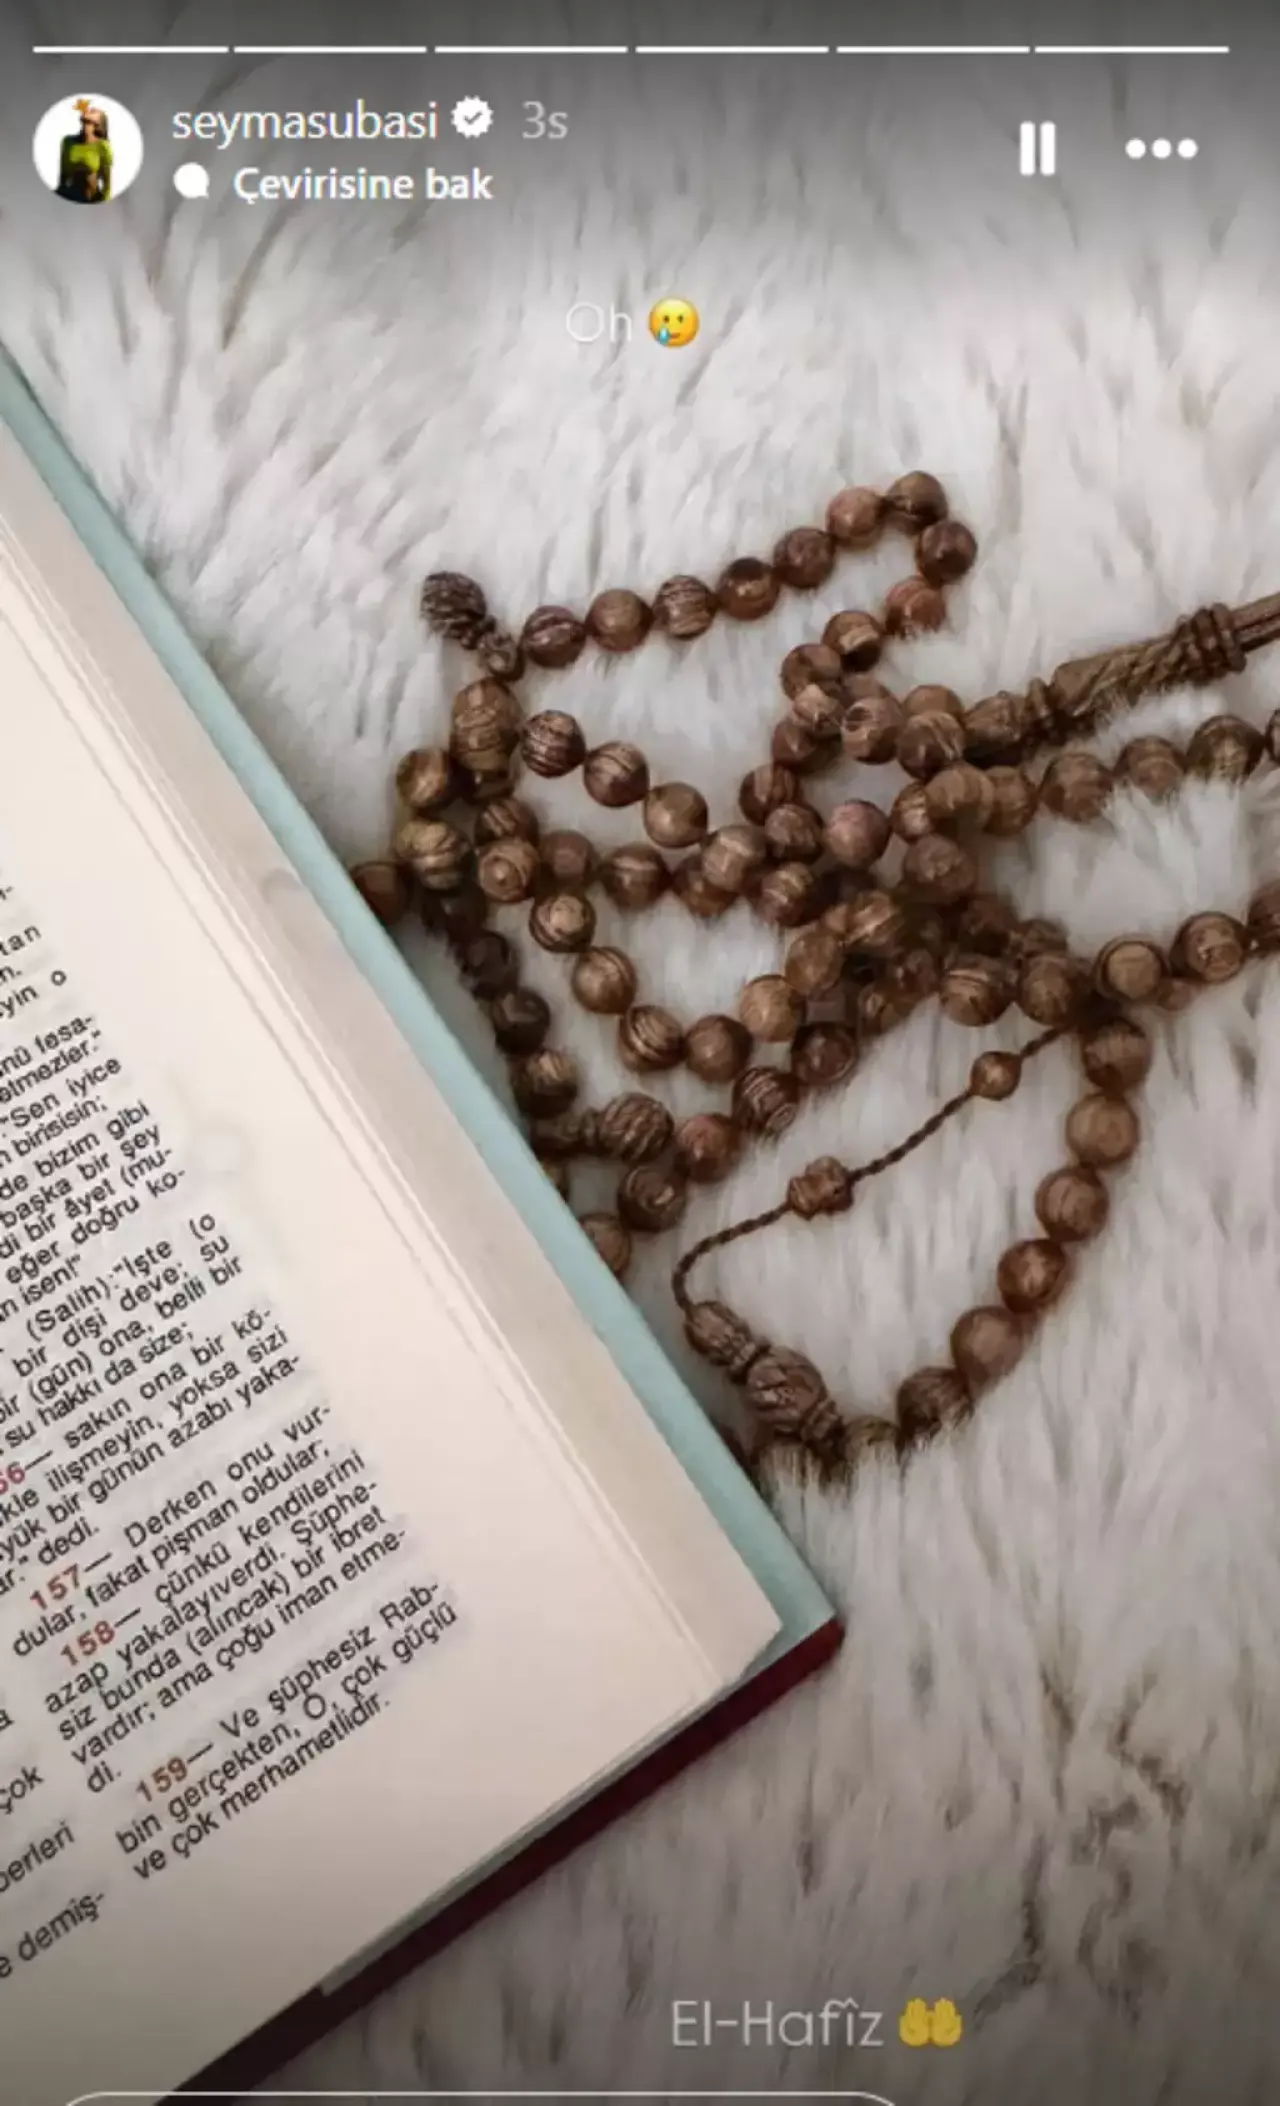 seymasubasi 3s
Çevirisine bak
Oh
tan
yin o
etmezler."
"Sen iyice
birisisin;
de bizim gibi
başka bir şey
di bir âyet (mu-
eğer doğru ko-
n isen!"
(Salih):"İşte (o
bir dişi deve; su
bir (gün) ona, belli bir
su hakkı da size;
56— sakın ona bir kö-
ilişmeyin, yoksa sizi
yük bir günün azabı yaka-
ar." dedi.
157— Derken onu vur-
dular, fakat pişman oldular;
158— çünkü kendilerini
azap yakalayıverdi. Şüphe-
siz bunda (alıncak) bir ibret
vardır; ama çoğu iman etme-
di.
159— Ve şüphesiz Rab-
bin gerçekten, O, çok güçlü
ve çok merhametlidir.
çok
berleri
e demiş-
El-Hafîz